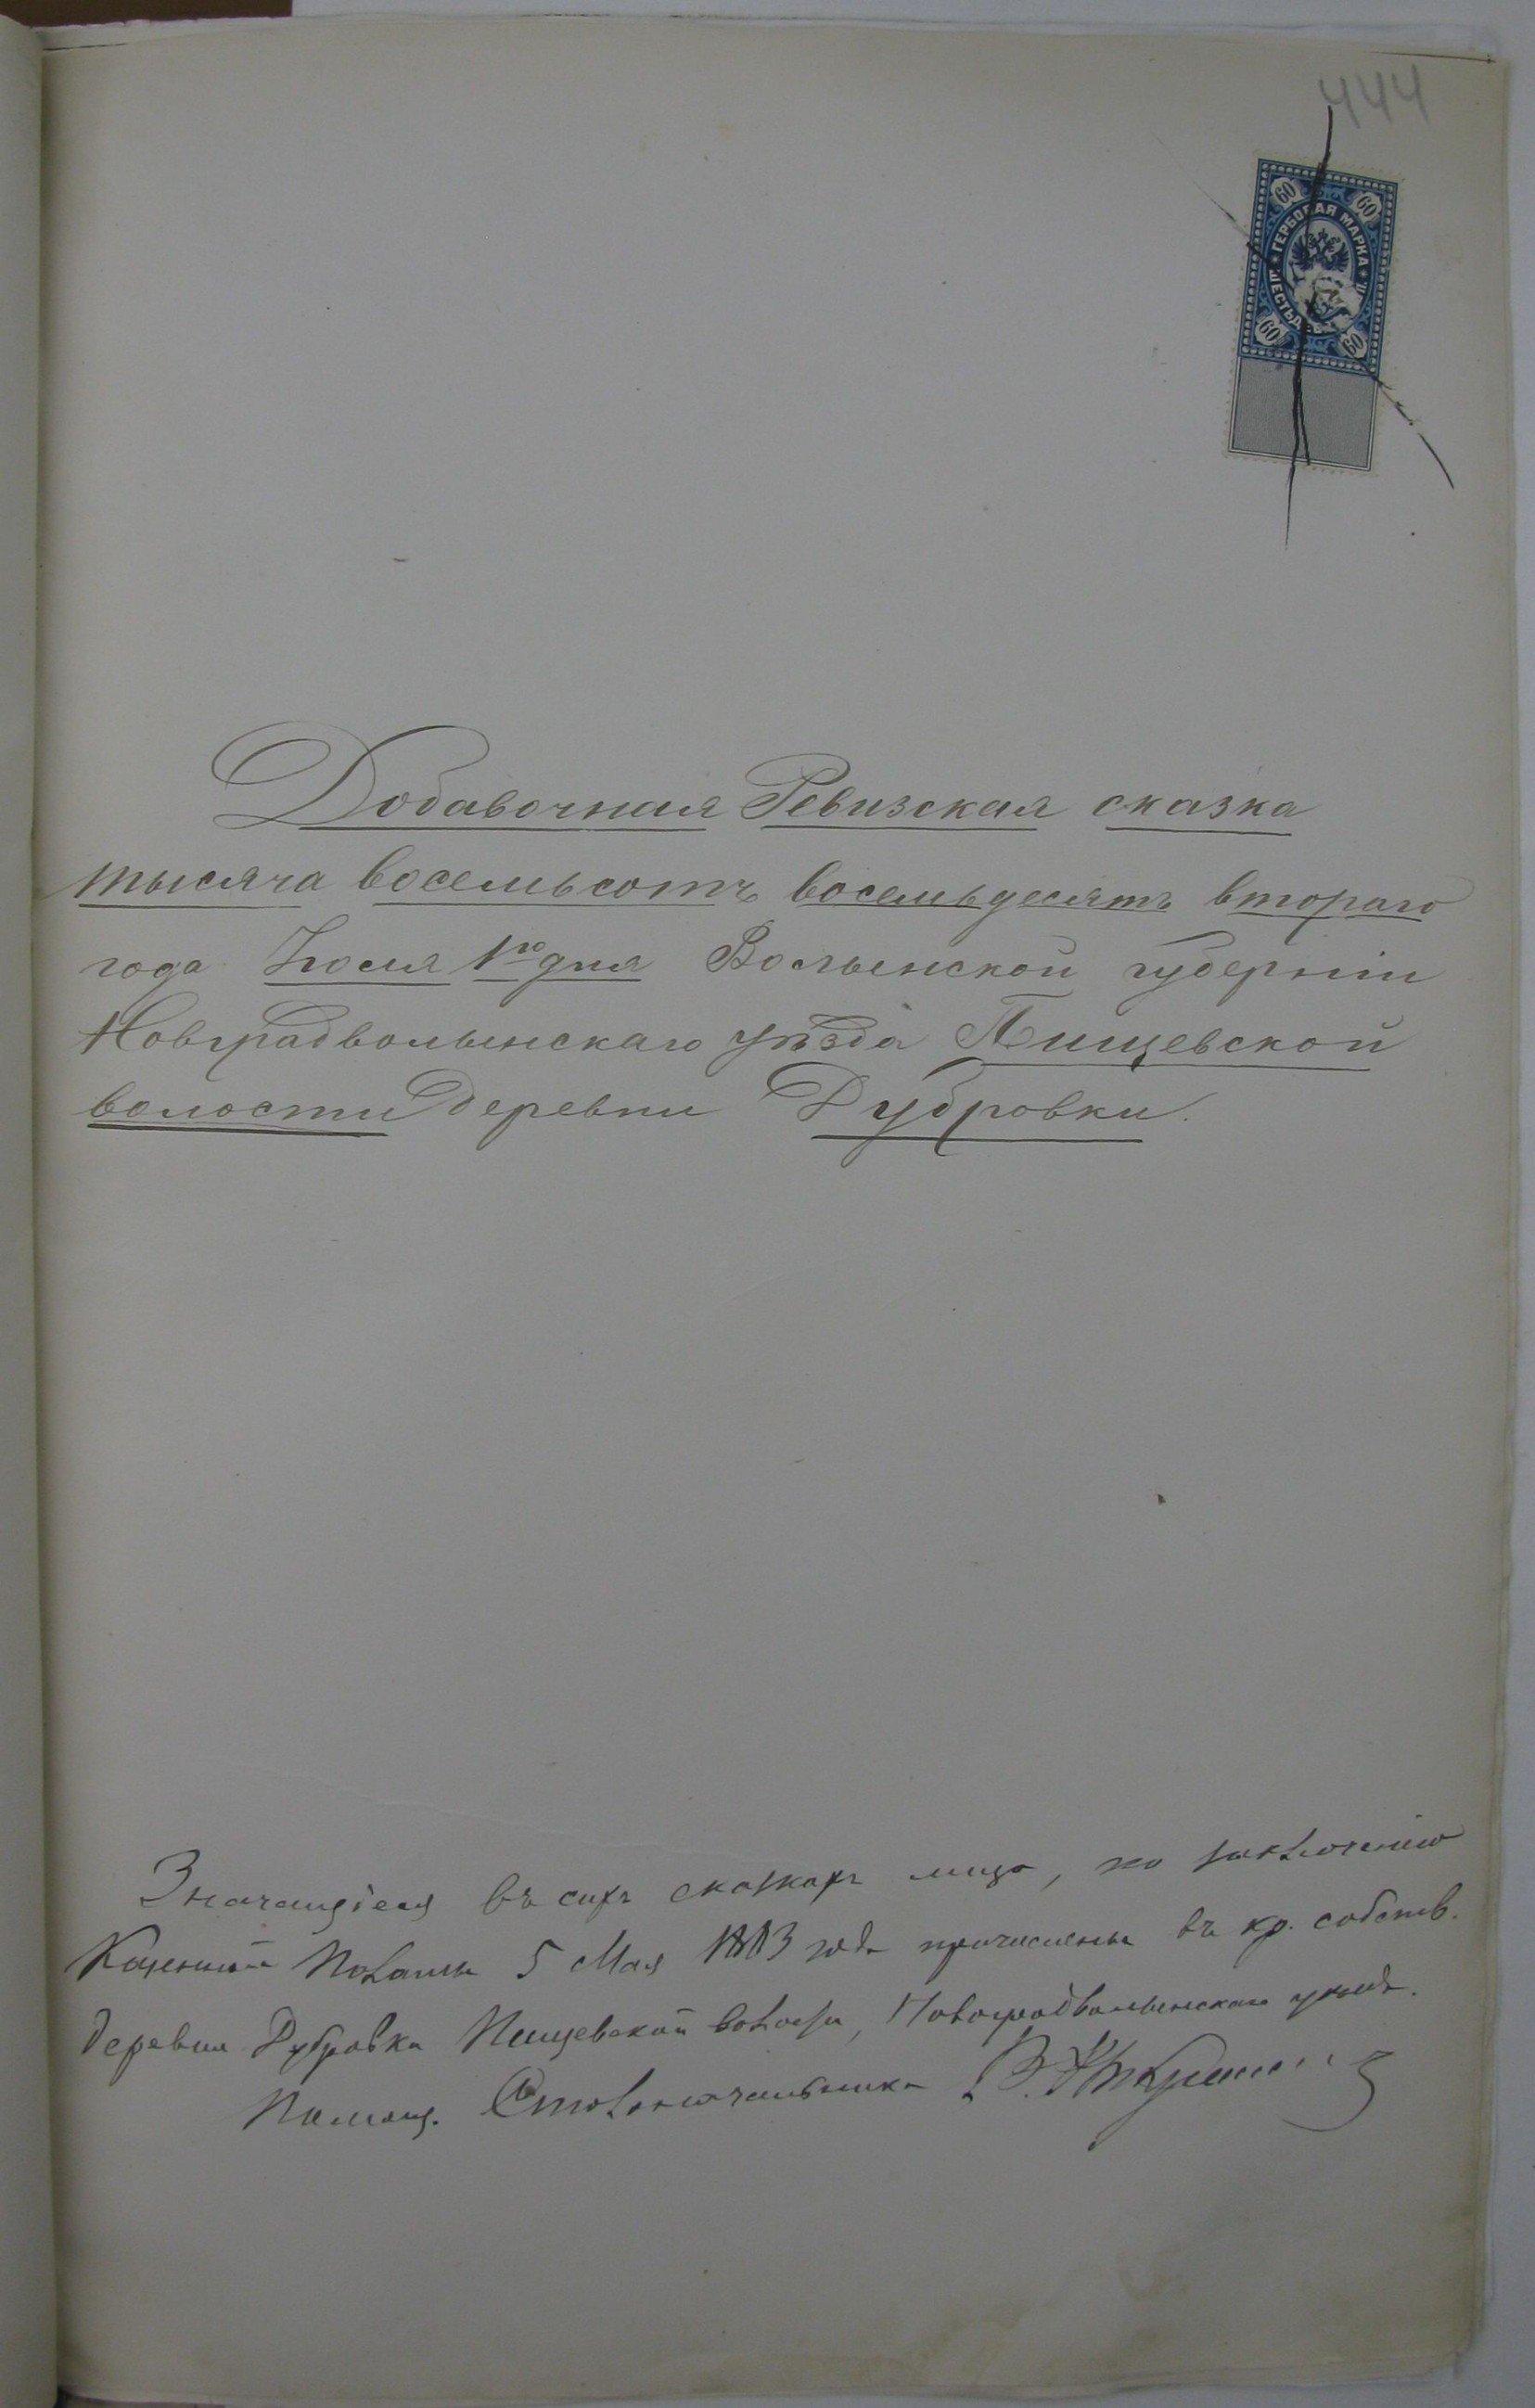 444
60 60
ГЕРБОВАЯ МАРКА
60 60
Добавочная Ревизская сказка
тысяча восемьсотъ восемьдесятъ втораго
года Іюля 1го дня Волынской губерніи
Новградволынскаго уѣзда Пищевской
волости деревни Дубровки.
Значащіеся въ сихъ сказкахъ лица, по заключенію
Казенной Палаты 5 Мая 1883 года причислены въ кр. собств.
деревни Дубровки Пищевской волости, Новоградволынскаго уѣзда.
Помощ. Столоначальника В.